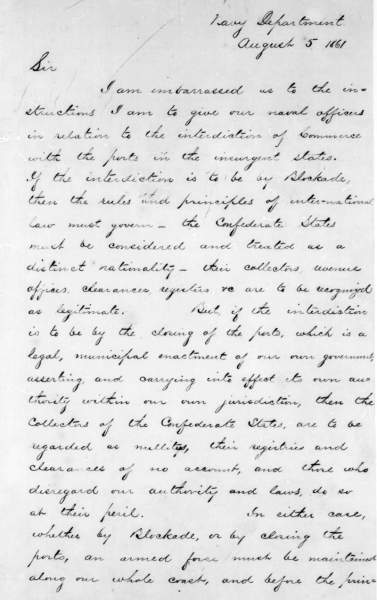 Navy Department
August 5 1861
Sir
I am embarrassed as to the in-
structions I am to give our naval officers
in relation to the interdiction of Commerce
with the ports in the insurgent states.
If the interdiction is to be by Blockade,
then the rules and principles of international
law must govern — the Confederate States
must be considered and treated as a
distinct nationality — their collectors, revenue
officers, clearances, registers, &c are to be recognized
as legitimate. But, if the interdiction
is to be by the closing of the ports, which is a
legal, municipal enactment of our own government,
asserting and carrying into effect its own au-
thority within our own jurisdiction, then the
Collectors of the Confederate States, are to be
regarded as nullitys, their registries and
clearances of no account, and those who
disregard our authority and laws, do so
at their peril. In either case,
whether by Blockade, or by closing the
ports, an armed force must be maintained
along our whole coast, and before the prin-